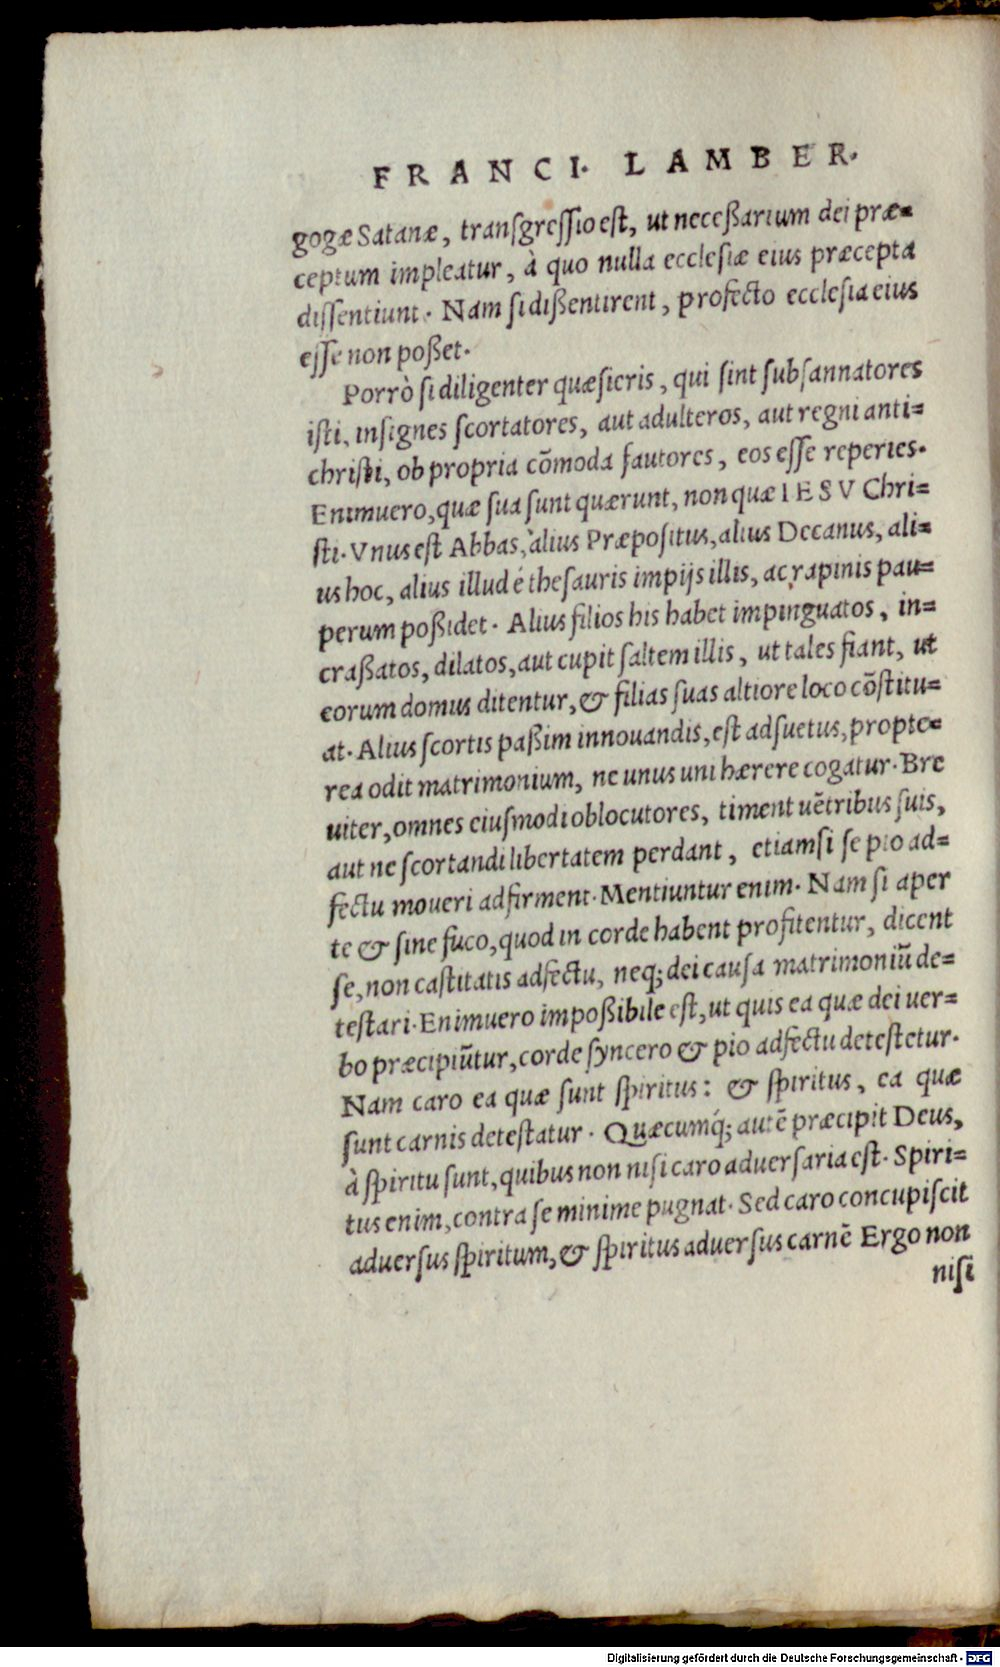 FRANCI. LAMBER.
gogæ Satanæ, transgreſſio est, ut neceßarium dei præ=
ceptum impleatur, à quo nulla eccleſiæ eius præcepta
diſſentiunt. Nam ſi dißentirent, profecto eccleſia eius
eſſe non poßet.
Porrò ſi diligenter quæſieris, qui ſint ſubſannatores
iſti, inſignes ſcortatores, aut adulteros, aut regni anti=
chriſti, ob propria cõmoda fautores, eos eſſe reperies.
Enimuero, quæ ſua ſunt quærunt, non quæ IESV Chri=
ſti. Vnus eſt Abbas, alius Præpoſitus, alius Decanus, ali=
us hoc, alius illud é theſauris impijs illis, ac rapinis pau=
perum poßidet. Alius filios his habet impinguatos, in=
craßatos, dilatos, aut cupit ſaltem illis, ut tales fiant, ut
eorum domus ditentur, & filias ſuas altiore loco cõſtitu=
at. Alius ſcortis paßim innouandis, eſt adſuetus, propte=
rea odit matrimonium, ne unus uni hærere cogatur. Bre
uiter, omnes eiuſmodi oblocutores, timent uẽtribus ſuis,
aut ne ſcortandi libertatem perdant, etiamſi ſe pio ad=
fectu moueri adfirment. Mentiuntur enim. Nam ſi aper
te & ſine fuco, quod in corde habent profitentur, dicent
ſe, non caſtitatis adfectu, neq; dei cauſa matrimoniũ de=
teſtari. Enimuero impoßibile eſt, ut quis ea quæ dei uer=
bo præcipiũtur, corde ſyncero & pio adfectu deteſtetur.
Nam caro ea quæ ſunt ſpiritus: & ſpiritus, ea quæ
ſunt carnis deteſtatur. Quæcumq́; autẽ præcipit Deus,
à ſpiritu ſunt, quibus non niſi caro aduerſaria eſt. Spiri=
tus enim, contra ſe minime pugnat. Sed caro concupiſcit
aduerſus ſpiritum, & ſpiritus aduerſus carnẽ Ergo non
niſi
Digitalisierung gefördert durch die Deutsche Forschungsgemeinschaft - DFG